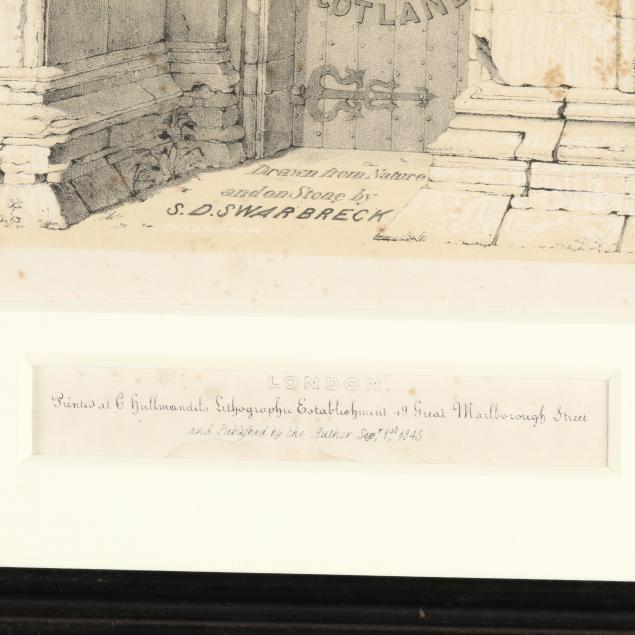 COTLAND
Drawn from Nature
and on Stone by
S.D. SWARBRECK
LONDON.
Printed at C Hullmandels Lithographic Establishment 49. Great Marlborough Street
and Published by the Author Sepr 1st 1845